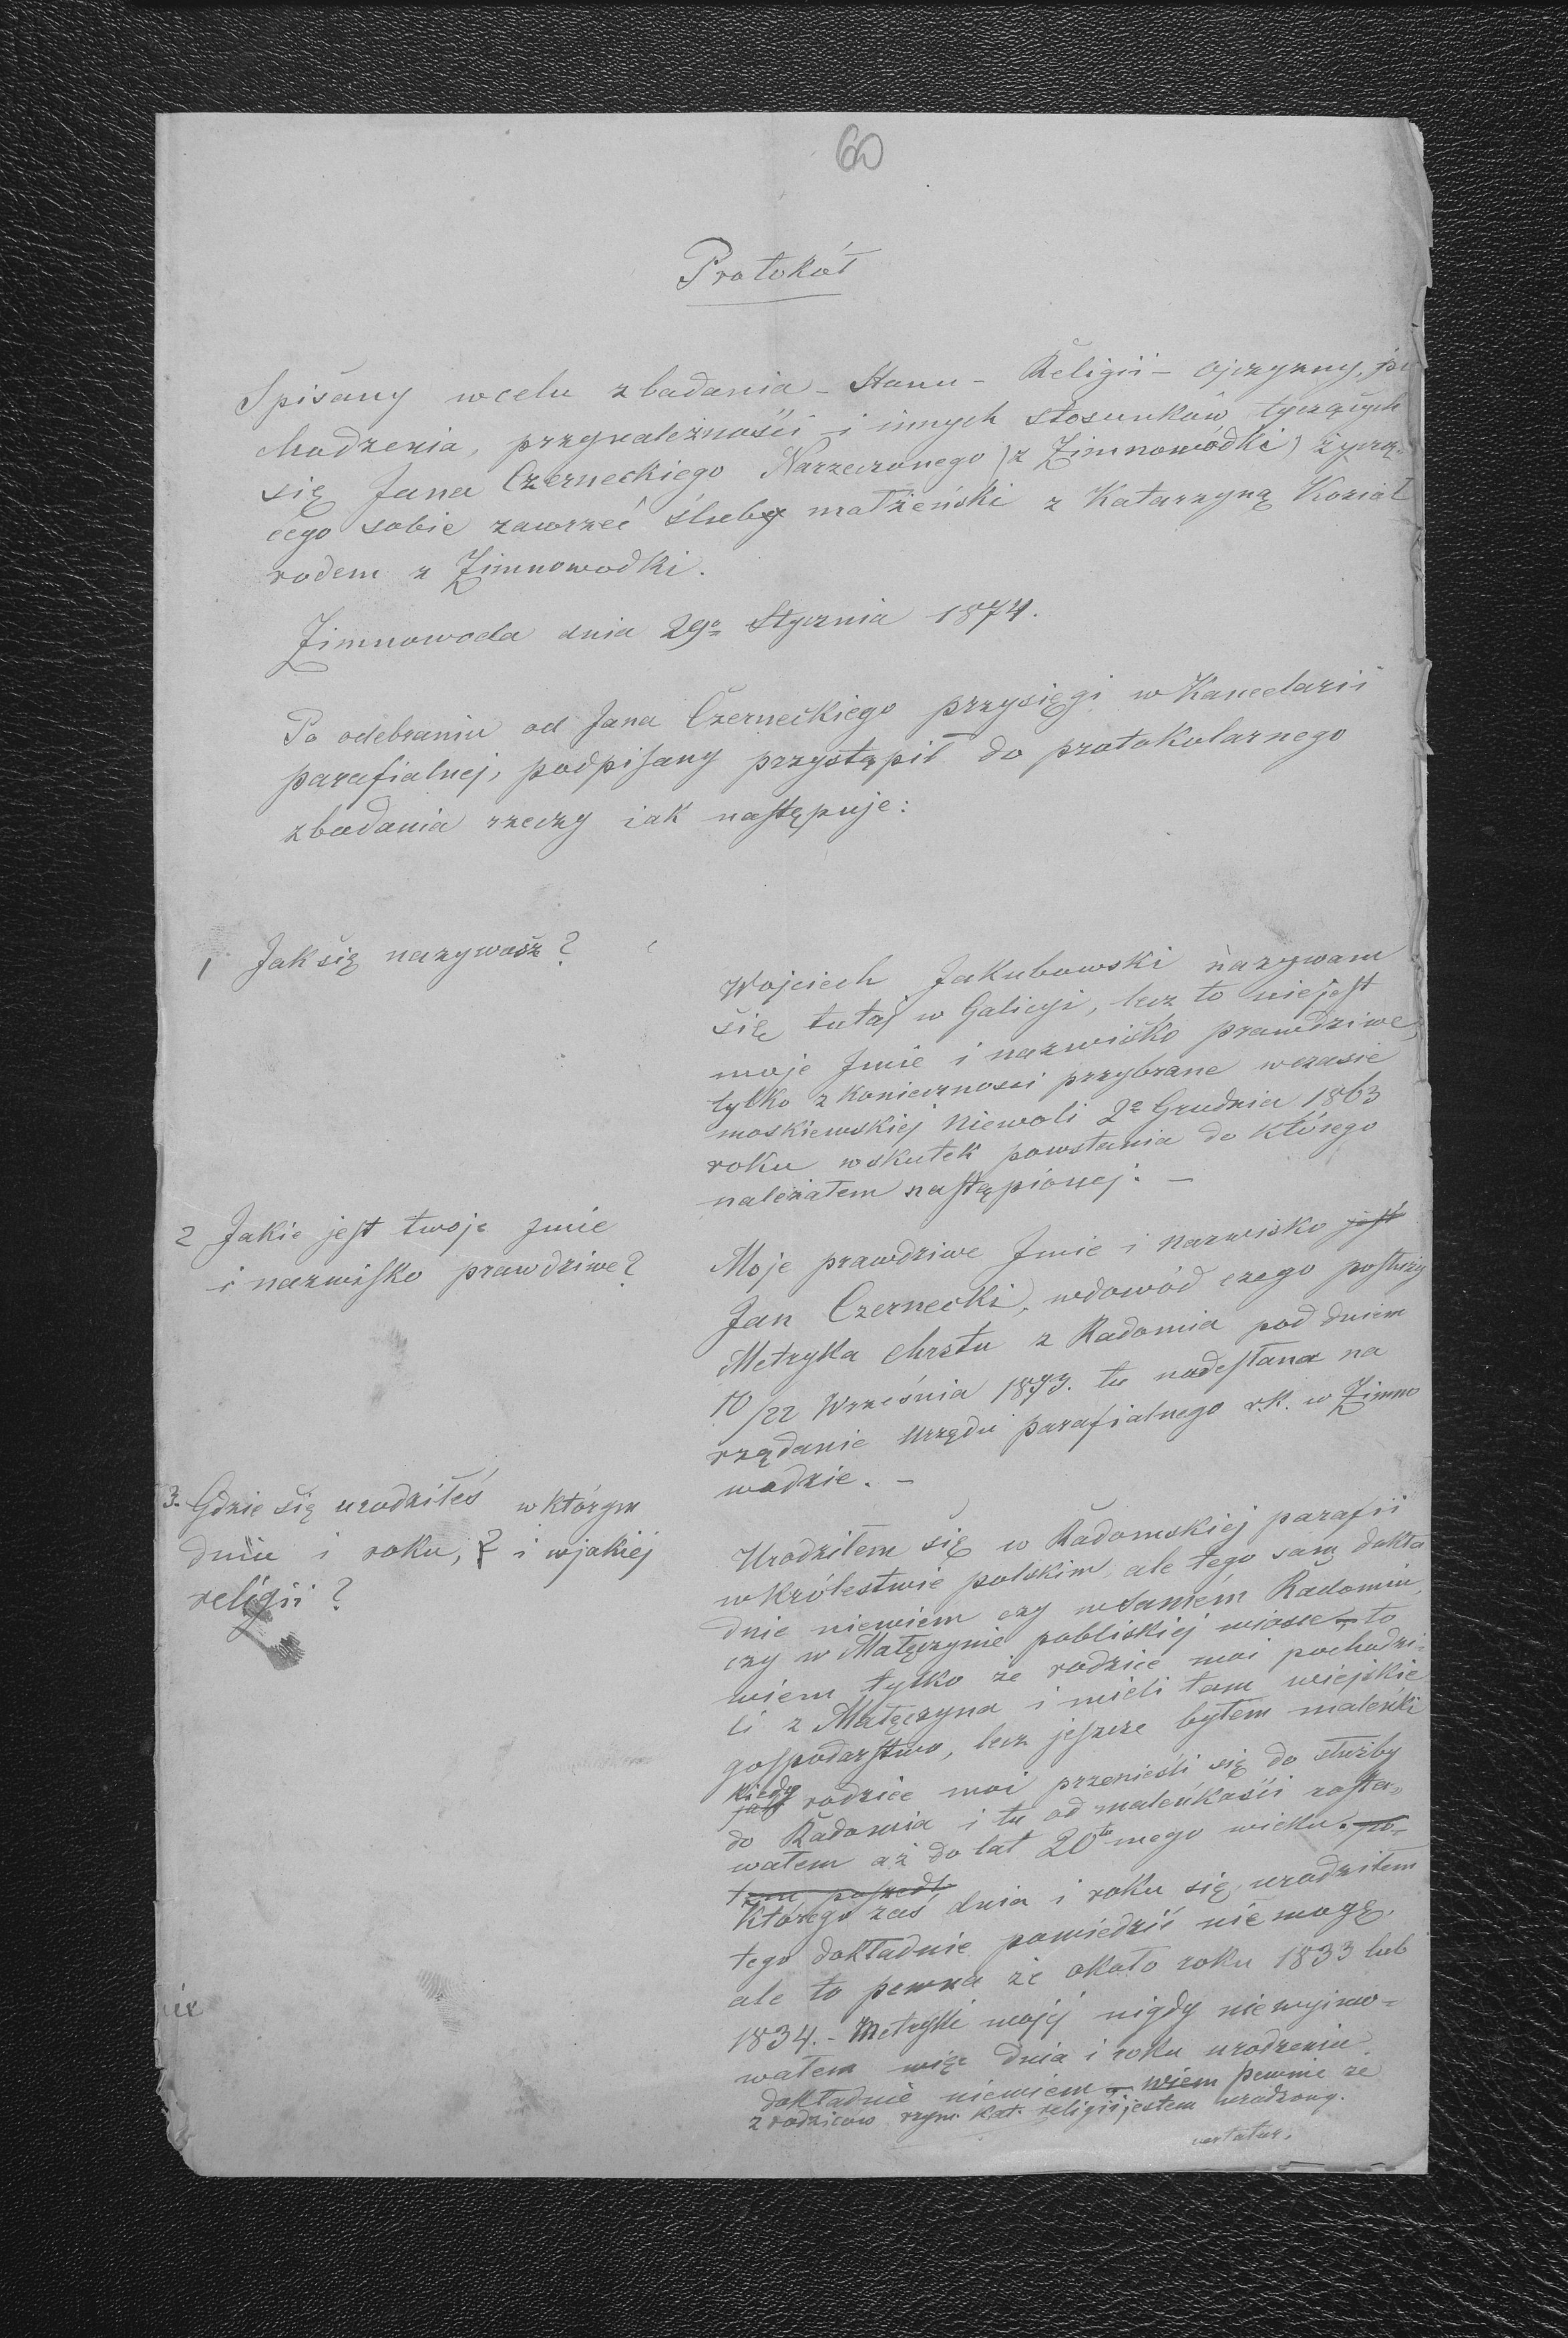 60
Protokół
Spisany w celu zbadania - Stanu - Religii - ojczyzny, po
chodzenia, przynależności i innych stosunków tyczących
się Jana Czerneckiego Narzeczonego (z Zimnowódki) życzą-
cego sobie zawrzeć ślub małżeński z Katarzyną Kozioł
rodem z Zimnowodki.
Zimnowoda dnia 29go Stycznia 1874.
Po odebraniu od Jana Czerneckiego przysięgi w Kancelarii
parafialnej, podpisany przystąpił do protokolarnego
zbadania rzeczy jak następuje:
1 Jak się nazywasz?
Wojciech Jakubowski nazywam
się tutaj w Galicyi, lecz to nie jest
moje Jmie i nazwisko prawdziwe,
tylko z konieczności przybrane w czasie
moskiewskiej Niewoli 2go Grudnia 1863
roku wskutek powstania do którego
należałem nastąpionej. -
2 Jakie jest twoje Jmie
i nazwisko prawdziwe?
Moje prawdziwe Jmie i nazwisko jest
Jan Czernecki, w dowód czego posłuży
Metryka Chrztu z Radomia pod dniem
10/22 Września 1873. tu nadesłana na
rządanie Urzędu parafialnego r.k. w Zimno
wodzie. -
3. Gdzie się urodziłeś w którym
dniu i roku, i w jakiej
religii?
Urodziłem się w Radomskiej parafii
w Królestwie polskim, ale tego samy dokła
dnie niewiem czy w samém Radomiu,
czy w Małęczynie pobliskiej wiosce - to
wiem tylko że rodzice moi pochodzi-
li z Małęczyna i mieli tam wiejskie
gospodarstwo, lecz jeszcze byłem maleńki
kiedy rodzice moi przenieśli się do służby
do Radomia i tu od maleńkości zosta-
wałem aż do lat 20tu mego wieku. po-
tem poszedł
Którego zaś dnia i roku się urodziłem
tego dokładnie powiedzić nie mogę,
ale to pewna że około roku 1833 lub
1834. - Metryki mojej nigdy nie wyjmo-
wałem więc dnia i roku urodzenia
dokładnie niewiem - wiem pewnie że
z rodziców rzym. kat. religii jestem urodzony.
vertatur.